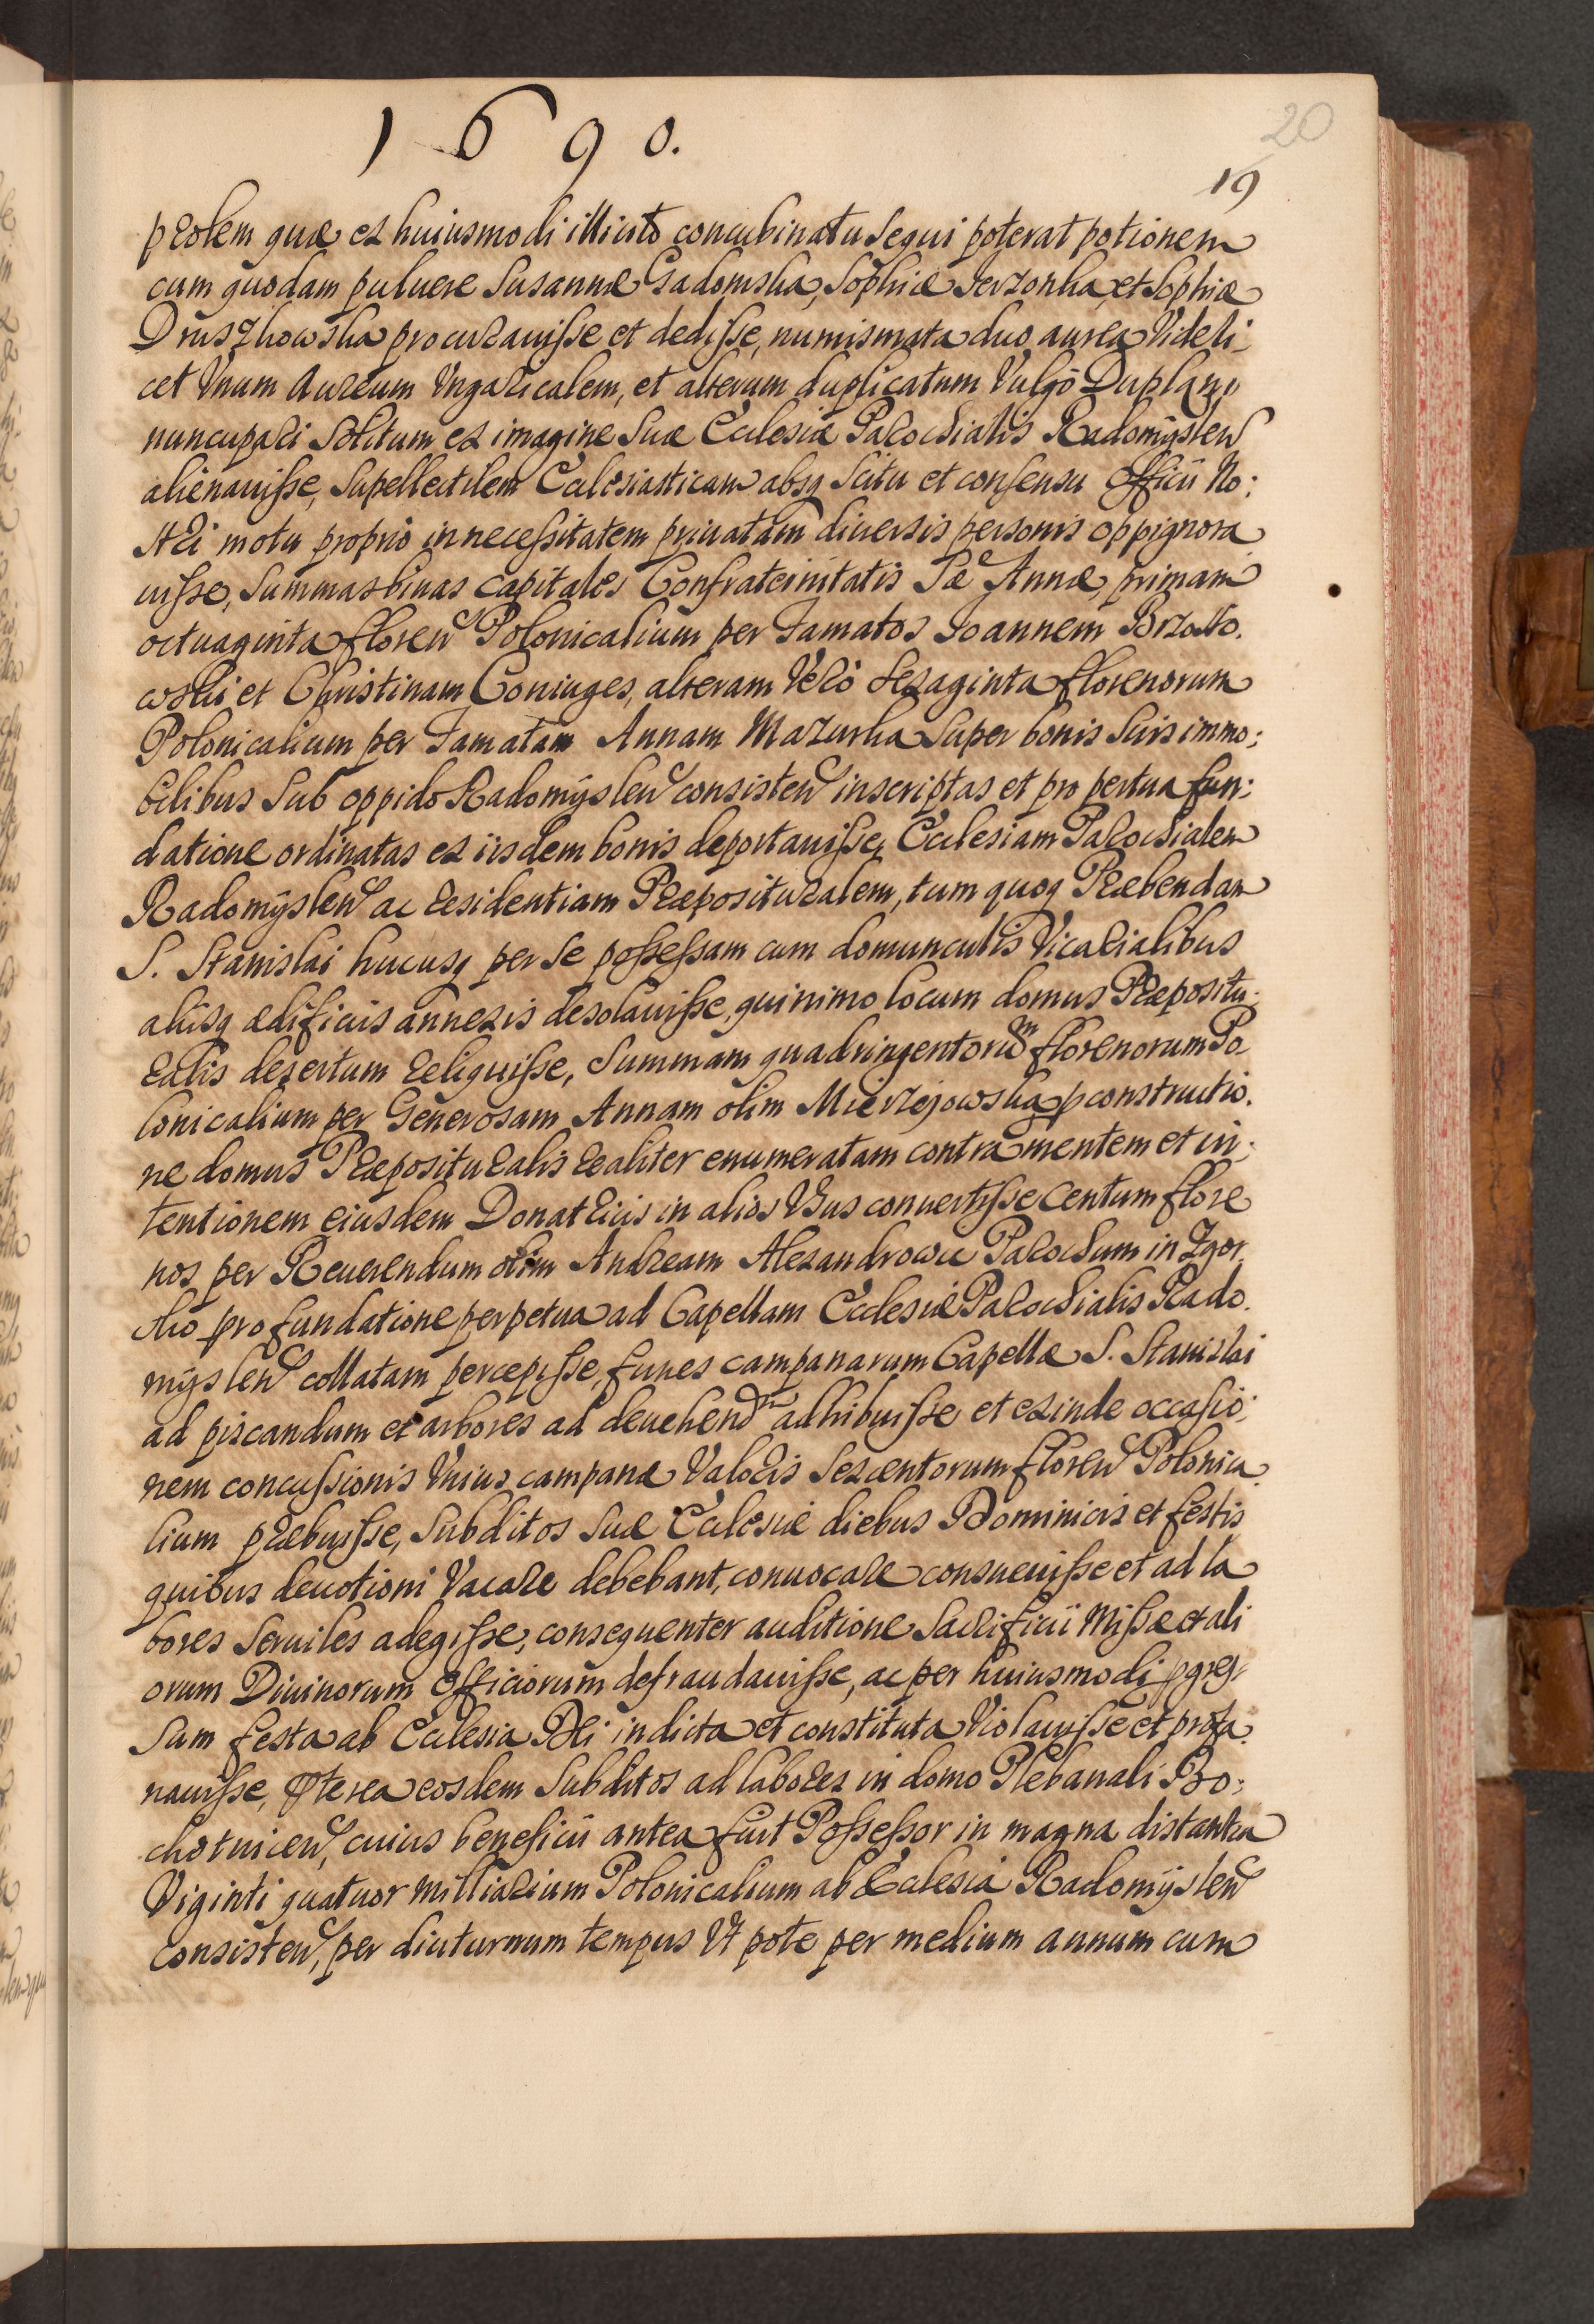 1690.
20
19
prolem quæ ex huiusmodi illicito concubinatu sequi poterat potionem
cum quodam puluere Susannæ Gadomska, Sophiæ Jerzonka, et Sophiæ
Druszkowska procurauisse et dedisse, numismata duo aurea Videli-
cet Vnum Aureum Vngaricalem, et alterum duplicatum Vulgo Duplany
nuncupari solitum ex imagine suæ Ecclesiæ Parochialis Radomyslen
alienauisse, supellectilem Ecclesiasticam absq scitu et consensu Officii No:
stri motu proprio in necessitatem priuatam diuersis personis oppignora
uisse, summas binas capitales Confraternitatis Sæ Annæ, primam
octuaginta floren Polonicalium per Famatos Joannem Borzo
wski et Christinam Coniuges, alteram Vero sexaginta florenorum
Polonicalium per Famatam Annam Mazurka super bonis suis immo:
bilibus sub oppido Radomyslen consisten inscriptas et pro pertua fun:
datione ordinatas ex iisdem bonis deportauisse, Ecclesiam Parochialem
Radomyslen ac residentiam Præposituralem, tum quoq Præbendam
S. Stanislai hucusq per se possessam cum domunculis Vicarialibus
aliisq ædificiis annexis desolauisse, quinimo locum domus Præpositu-
ralis desertum reliquisse, summam quadringentorum florenorum Po
lonicalium per Generosam Annam olim Mierzejowska p constructio.
ne domus Præposituralis realiter enumeratam contra mentem et in-
tentionem eiusdem Donatricis in alios Vsus conuertisse Centum flore
nos per Reuerendum olim Andream Alexandrowic Parochum in Zgor
sko pro fundatione perpetua ad Capellam Ecclesiæ Parochialis Rado.
myslen collatam percepisse, funes campanarum Capellæ S. Stanislai
ad piscandum et arbores ad deuehend adhibuisse et exinde occasio-
nem concussionis Vnius campanæ Valoris sexcentorum floren Polonica
lium præbuisse, subditos suæ Ecclesiæ diebus Dominicis et festis
quibus deuotioni Vacare debebant, conuocare consueuisse et ad la
bores seruiles adegisse, consequenter auditione Sacrificii Missæ et ali
orum Diuinorum Officiorum defraudauisse, ac per huiusmodi pgres
sum festa ab Ecclesia Dei indicta et constituta Violauisse et profa
nauisse, Pterea eosdem subditos ad labores in domo Plebanali Bo:
chotnicen, cuius beneficii antea fuit Possessor in magna distantia
Viginti quatuor milliarium Polonicalium ab Ecclesia Radomyslen
consisten, per diuturnum tempus Vt pote per medium annum cum